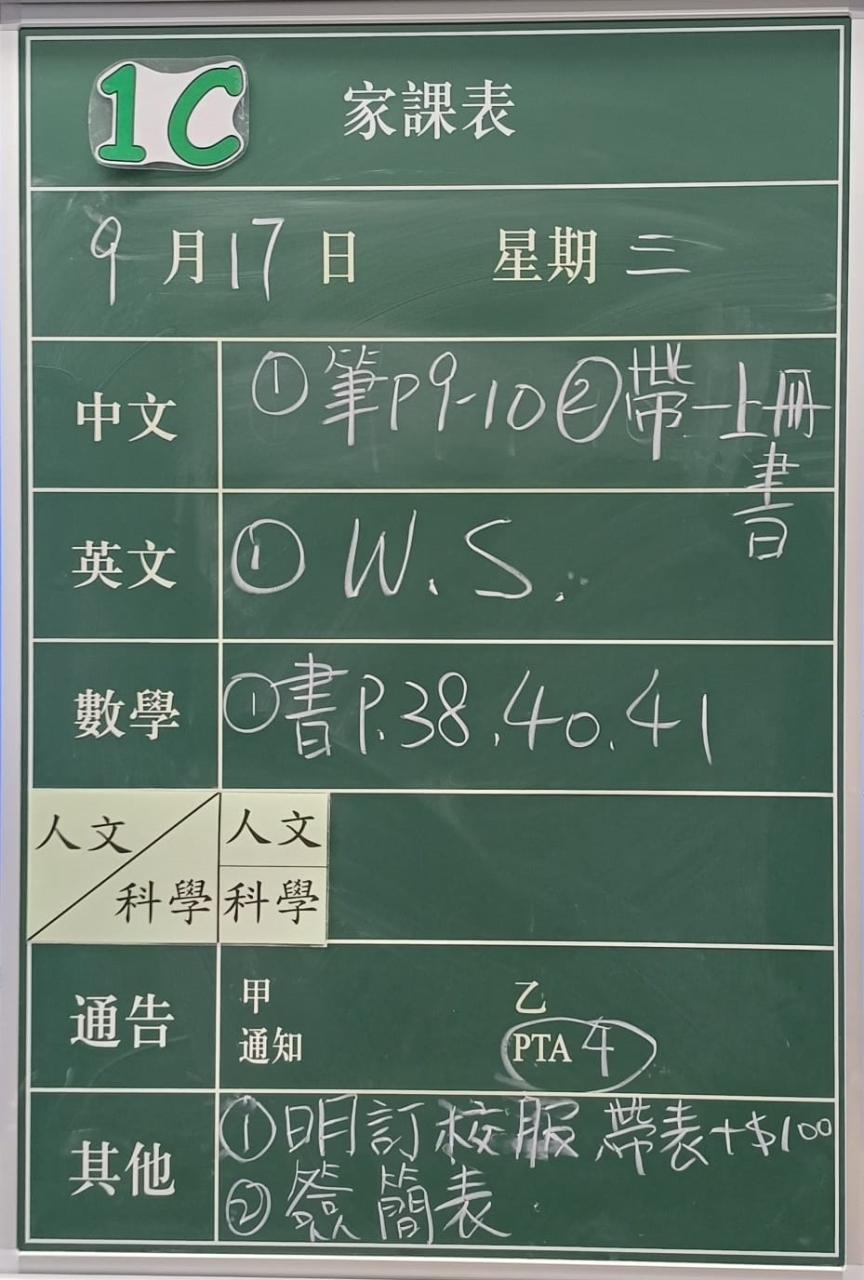 1C 家課表
9月17日 星期三
中文 ①筆P9-10②帶一上冊
書
英文 ①W.S.
數學 ①書P.38,40,41
人文 人文
科學 科學
通告 甲 乙
通知 PTA 4
其他 ①明訂校服 帶表+$100
②簽簡表